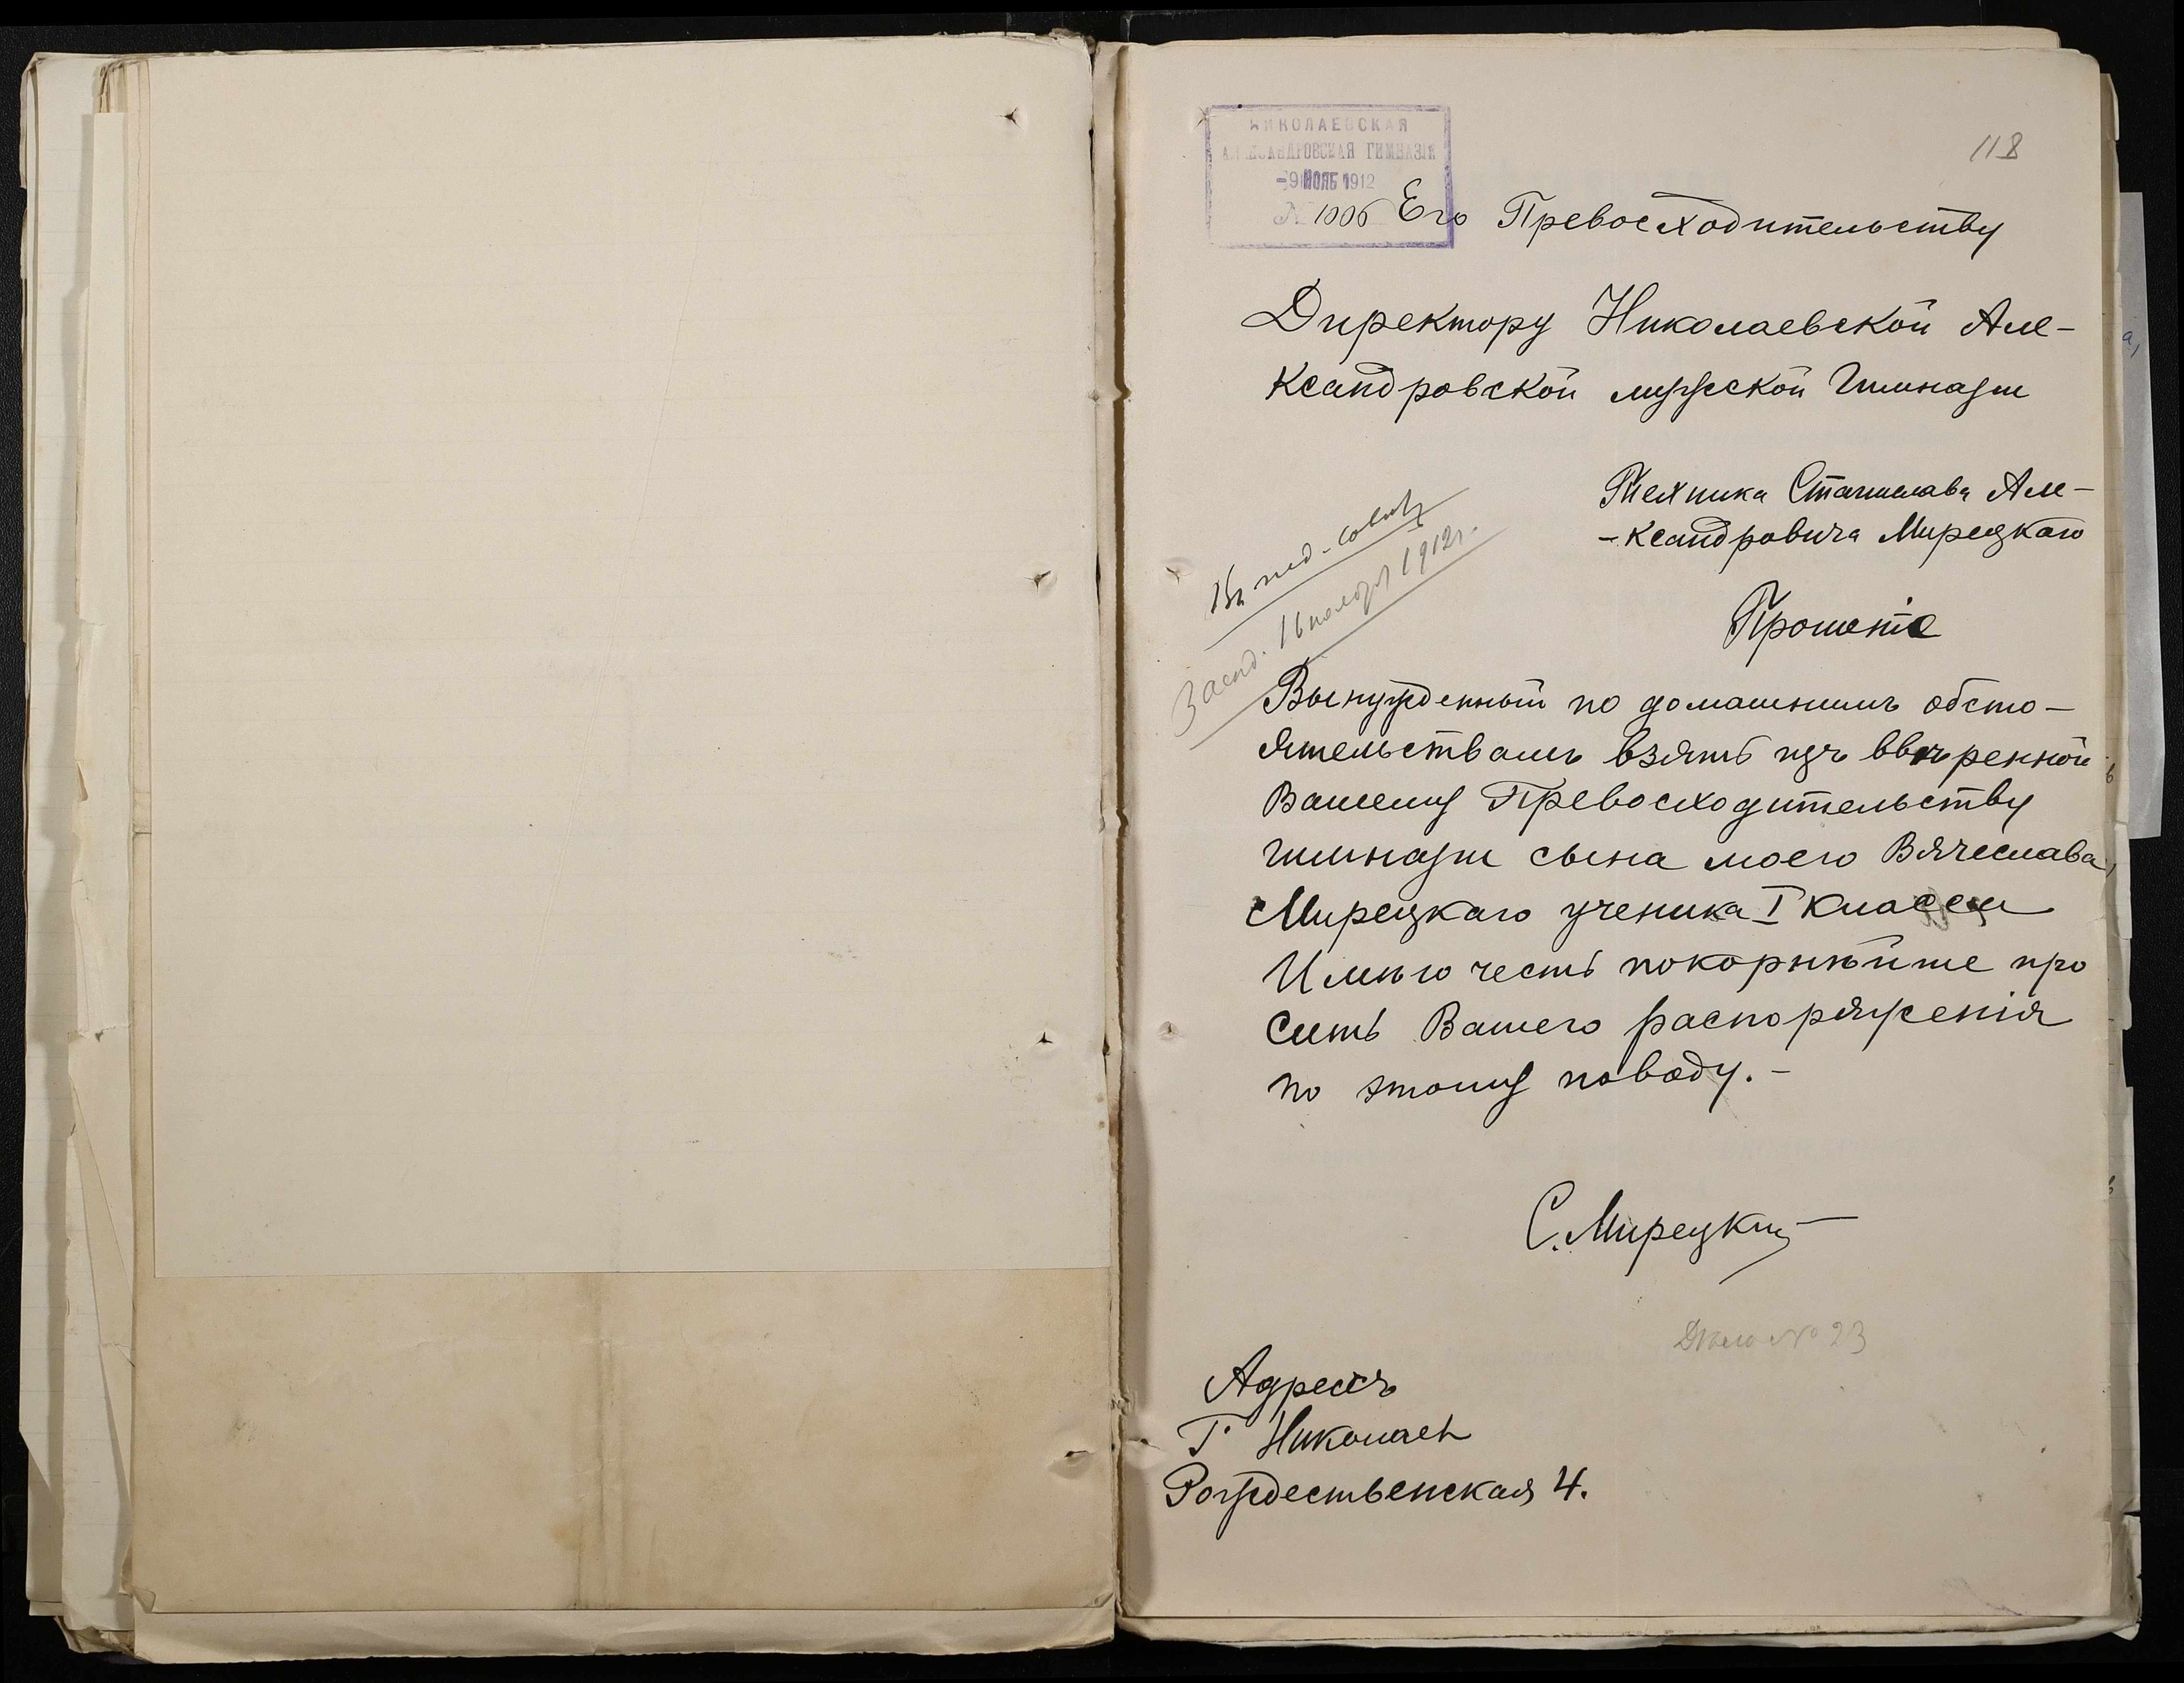 НИКОЛАЕВСКАЯ
АЛЕКСАНДРОВСКАЯ ГИМНАЗІЯ
-9 НОЯБ 1912
№ 1006
118
Его Превосходительству
Директору Николаевской Але-
ксандровской мужской Гимназіи
Техника Станислава Але-
-ксандровича Мирецкаго
Прошеніе
Въ пед. совѣтъ
Засѣд. 16 ноября 1912 г.
Вынужденный по домашнимъ обсто-
ятельствамъ взять изъ ввѣренной
Вашему Превосходительству
гимназіи сына моего Вячеслава
Мирецкаго ученика I класса
Имѣю честь покорнѣйше про
сить Вашего распоряженія
по этому поводу.-
С. Мирецкій
Дѣло № 23
Адрессъ
Г. Николаев
Рождественская 4.